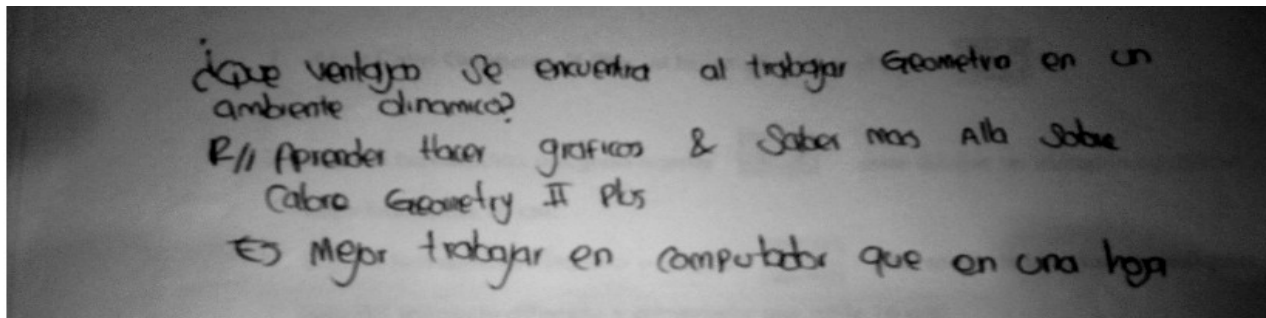 ¿Que ventajas se encuentra al trabajar Geometria en un
ambiente dinamico?
R// Aprender Hacer graficos & Saber mas Alla Sobre
Cabro Geometry II Plus
Es Mejor trabajar en computador que en una hoja